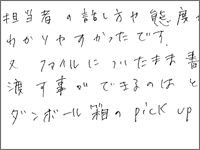 担当者の話し方や態度か
わかりやすかったです.
又 ファイルについたまま書
渡す事ができるのはと
ダンボール箱のpick up